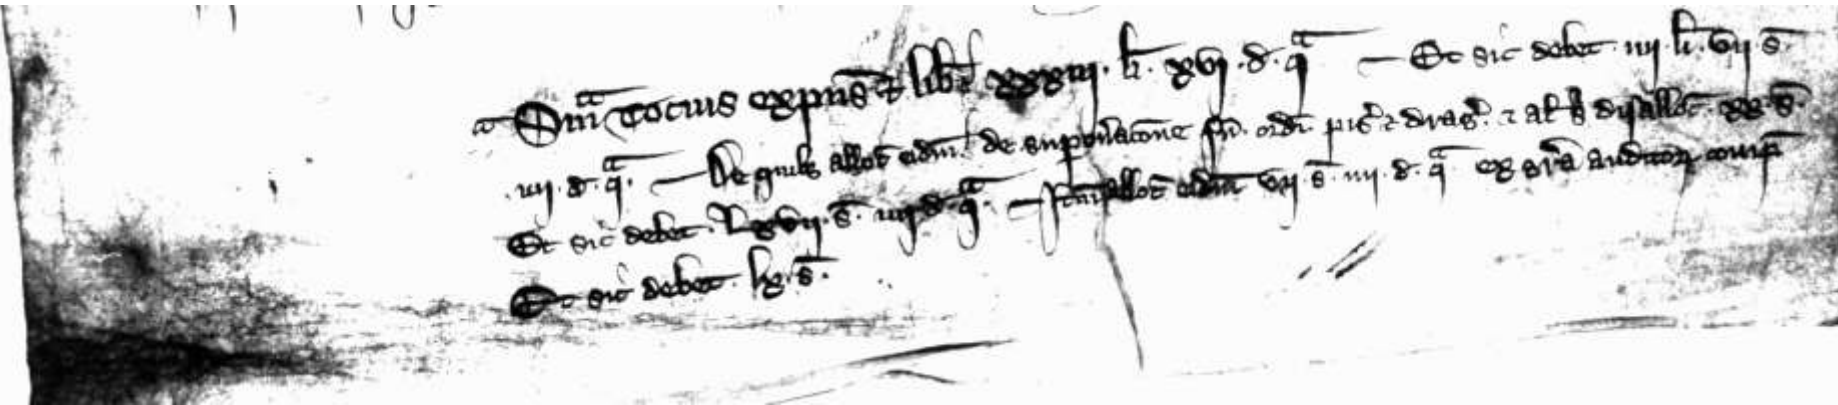 Sma tocius expns̄ & lib̄ xxxiij. li. xvj. d. qᵃ — Et sic debet iiij li. vij s̄.
iiij. d. qᵃ. — De quib; alloc̄ eidm̄ de sup oñacone fr̄i ordī pis̄ & drag̃ & al̄ disalloc̄. xx. s̄.
Et sic debet. Lxvij. s̄. iiij d. qᵃ. — Itm̄ alloc̄ eidm̄ vij. s̄. iiij. d. qᵃ ex gr̄a auditoꝝ comp̄
Et sic debet. lx. s̄.